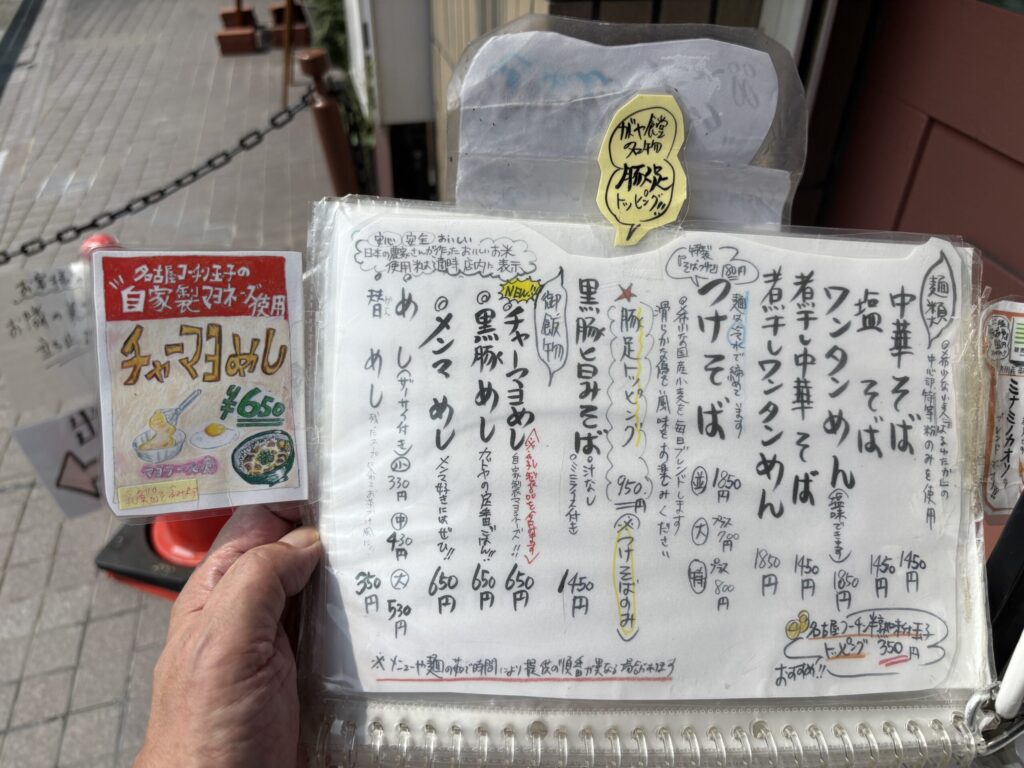 がや食堂
の名物
豚足
トッピング!!
麺類
中心部特等粉のみを使用
中華そば 1450円
塩そば 1450円
ワンタンめん(塩味できます) 1850円
煮干し中華そば 1450円
煮干しワンタンめん 1850円
名古屋コーチン半熟味付玉子
トッピング 350円
おすすめ!!
特製
つけそば
麺は冷水で締めています
並 1850円
大 プラス
特 プラス 800円
◎希少な国産小麦を毎日ブレンドします
滑らかな食感と良い風味をお楽しみください
★豚足トッピング 950円(※つけそばのみ)
黒豚旨みそば ◎汁なし 1450円
御飯物
安心 安全 おいしい
日本の農家さんが作ったおいしいお米
使用
店内に表示
NEW!!
◎チャーマヨめし 自家製マヨネーズ!! 650円
◎黒豚めし 650円
◎メンマめし メンマ好きにはぜひ!! 650円
めし(ザーサイ付き) 小 330円 中 430円 大 530円
替めし 350円
※メニューや麺の茹で時間により提供の順番が異なる場合あります
名古屋コーチン玉子の
自家製マヨネーズ使用
チャーマヨめし
¥650
お客様
お隣の
ミナミノカオリ